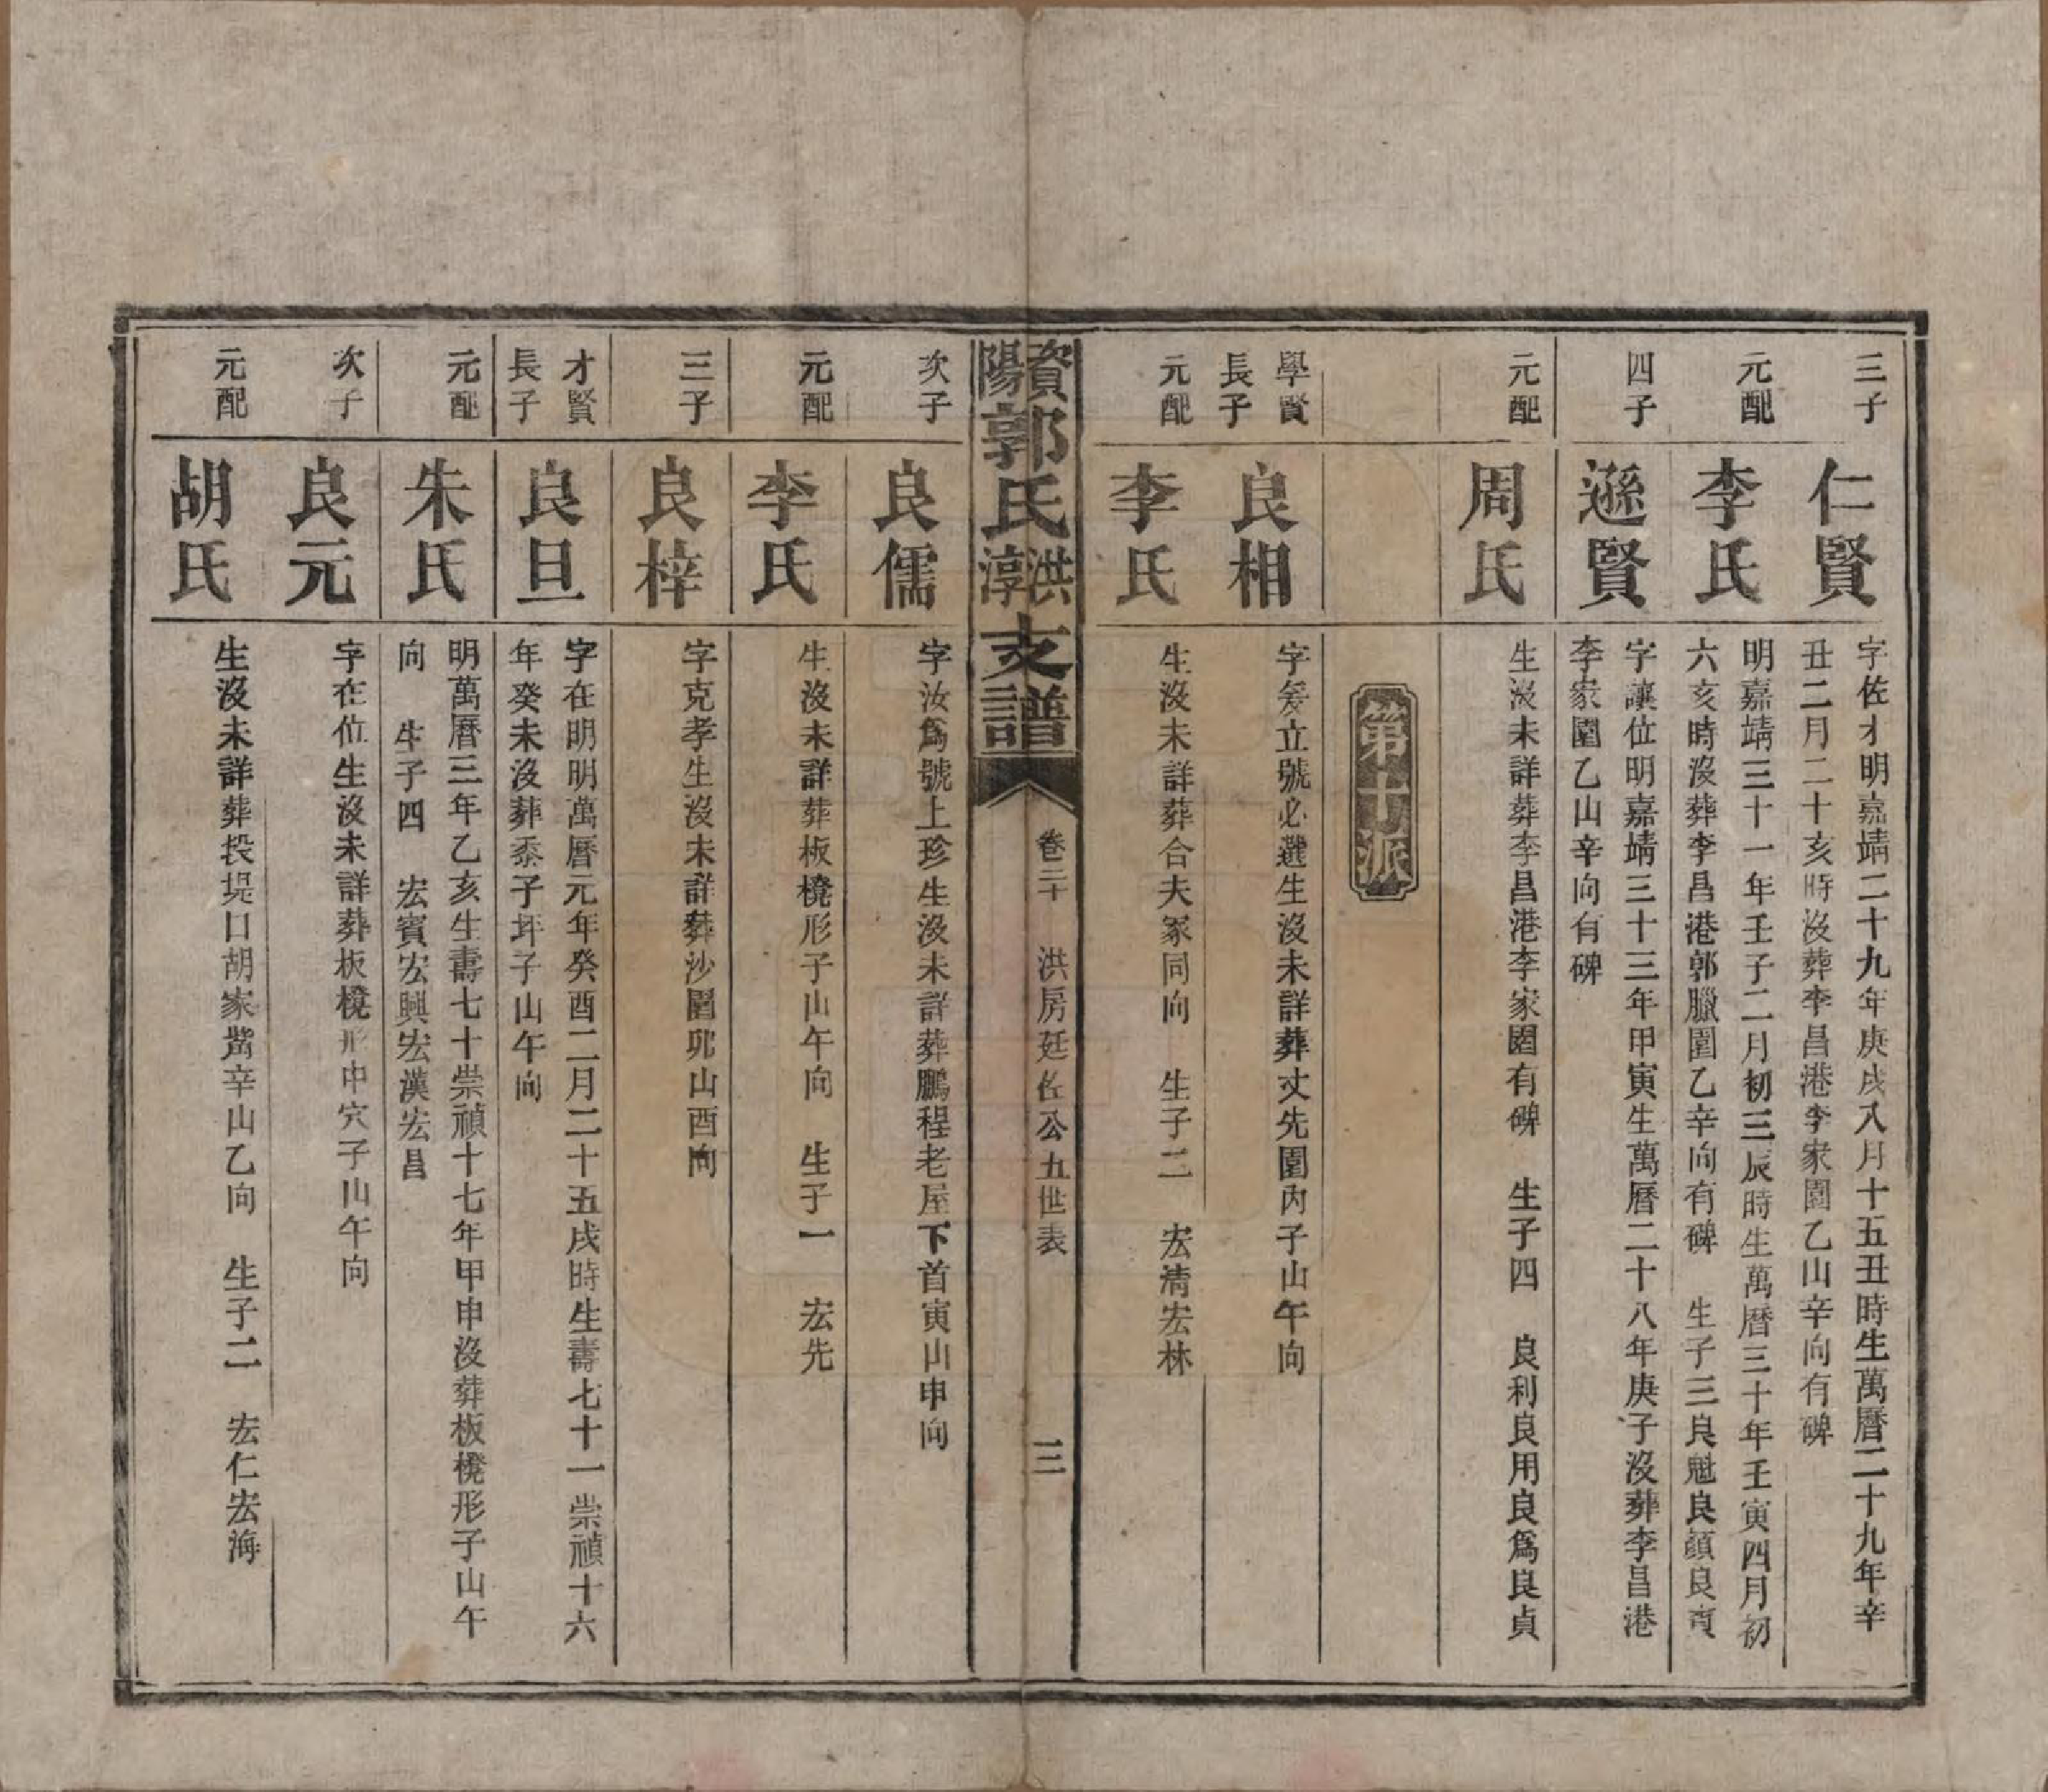 三子
仁賢
字佐才明嘉靖二十九年庚戌八月十五丑時生萬曆二十九年辛
丑二月二十亥時沒葬李昌港李家園乙山辛向有碑
元配
李氏
明嘉靖三十一年壬子二月初三辰時生萬曆三十年壬寅四月初
六亥時沒葬李昌港郭臘園乙辛向有碑　生子三良魁良顏良
四子
遜賢
字讓位明嘉靖三十三年甲寅生萬曆二十八年庚子沒葬李昌港
李家園乙山辛向有碑
元配
周氏
生沒未詳葬李昌港李家園有碑　生子四　良利良用良為良貞
第十派
學賢
長子
良相
字矣立號必選生沒未詳葬丈先園內子山午向
元配
李氏
生沒未詳葬合夫冢同向　生子二　宏清宏林
資陽郭氏洪淳支譜
卷二十　洪房廷佐公五世表
三
次子
良儒
字汝為號上珍生沒未詳葬鵬程老屋下首寅山申向
元配
李氏
生沒未詳葬板櫈形子山午向　生子一　宏先
三子
良梓
字克孝生沒未詳葬沙園卯山酉向
才賢
長子
良旦
字在明明萬曆元年癸酉二月二十五戌時生壽七十一崇禎十六
年癸未沒葬黍子坪子山午向
元配
朱氏
明萬曆三年乙亥生壽七十崇禎十七年甲申沒葬板櫈形子山午
向　生子四　宏賓宏興宏漢宏昌
次子
良元
字在位生沒未詳葬板櫈形中穴子山午向
元配
胡氏
生沒未詳葬投堤口胡家嵤辛山乙向　生子二　宏仁宏海